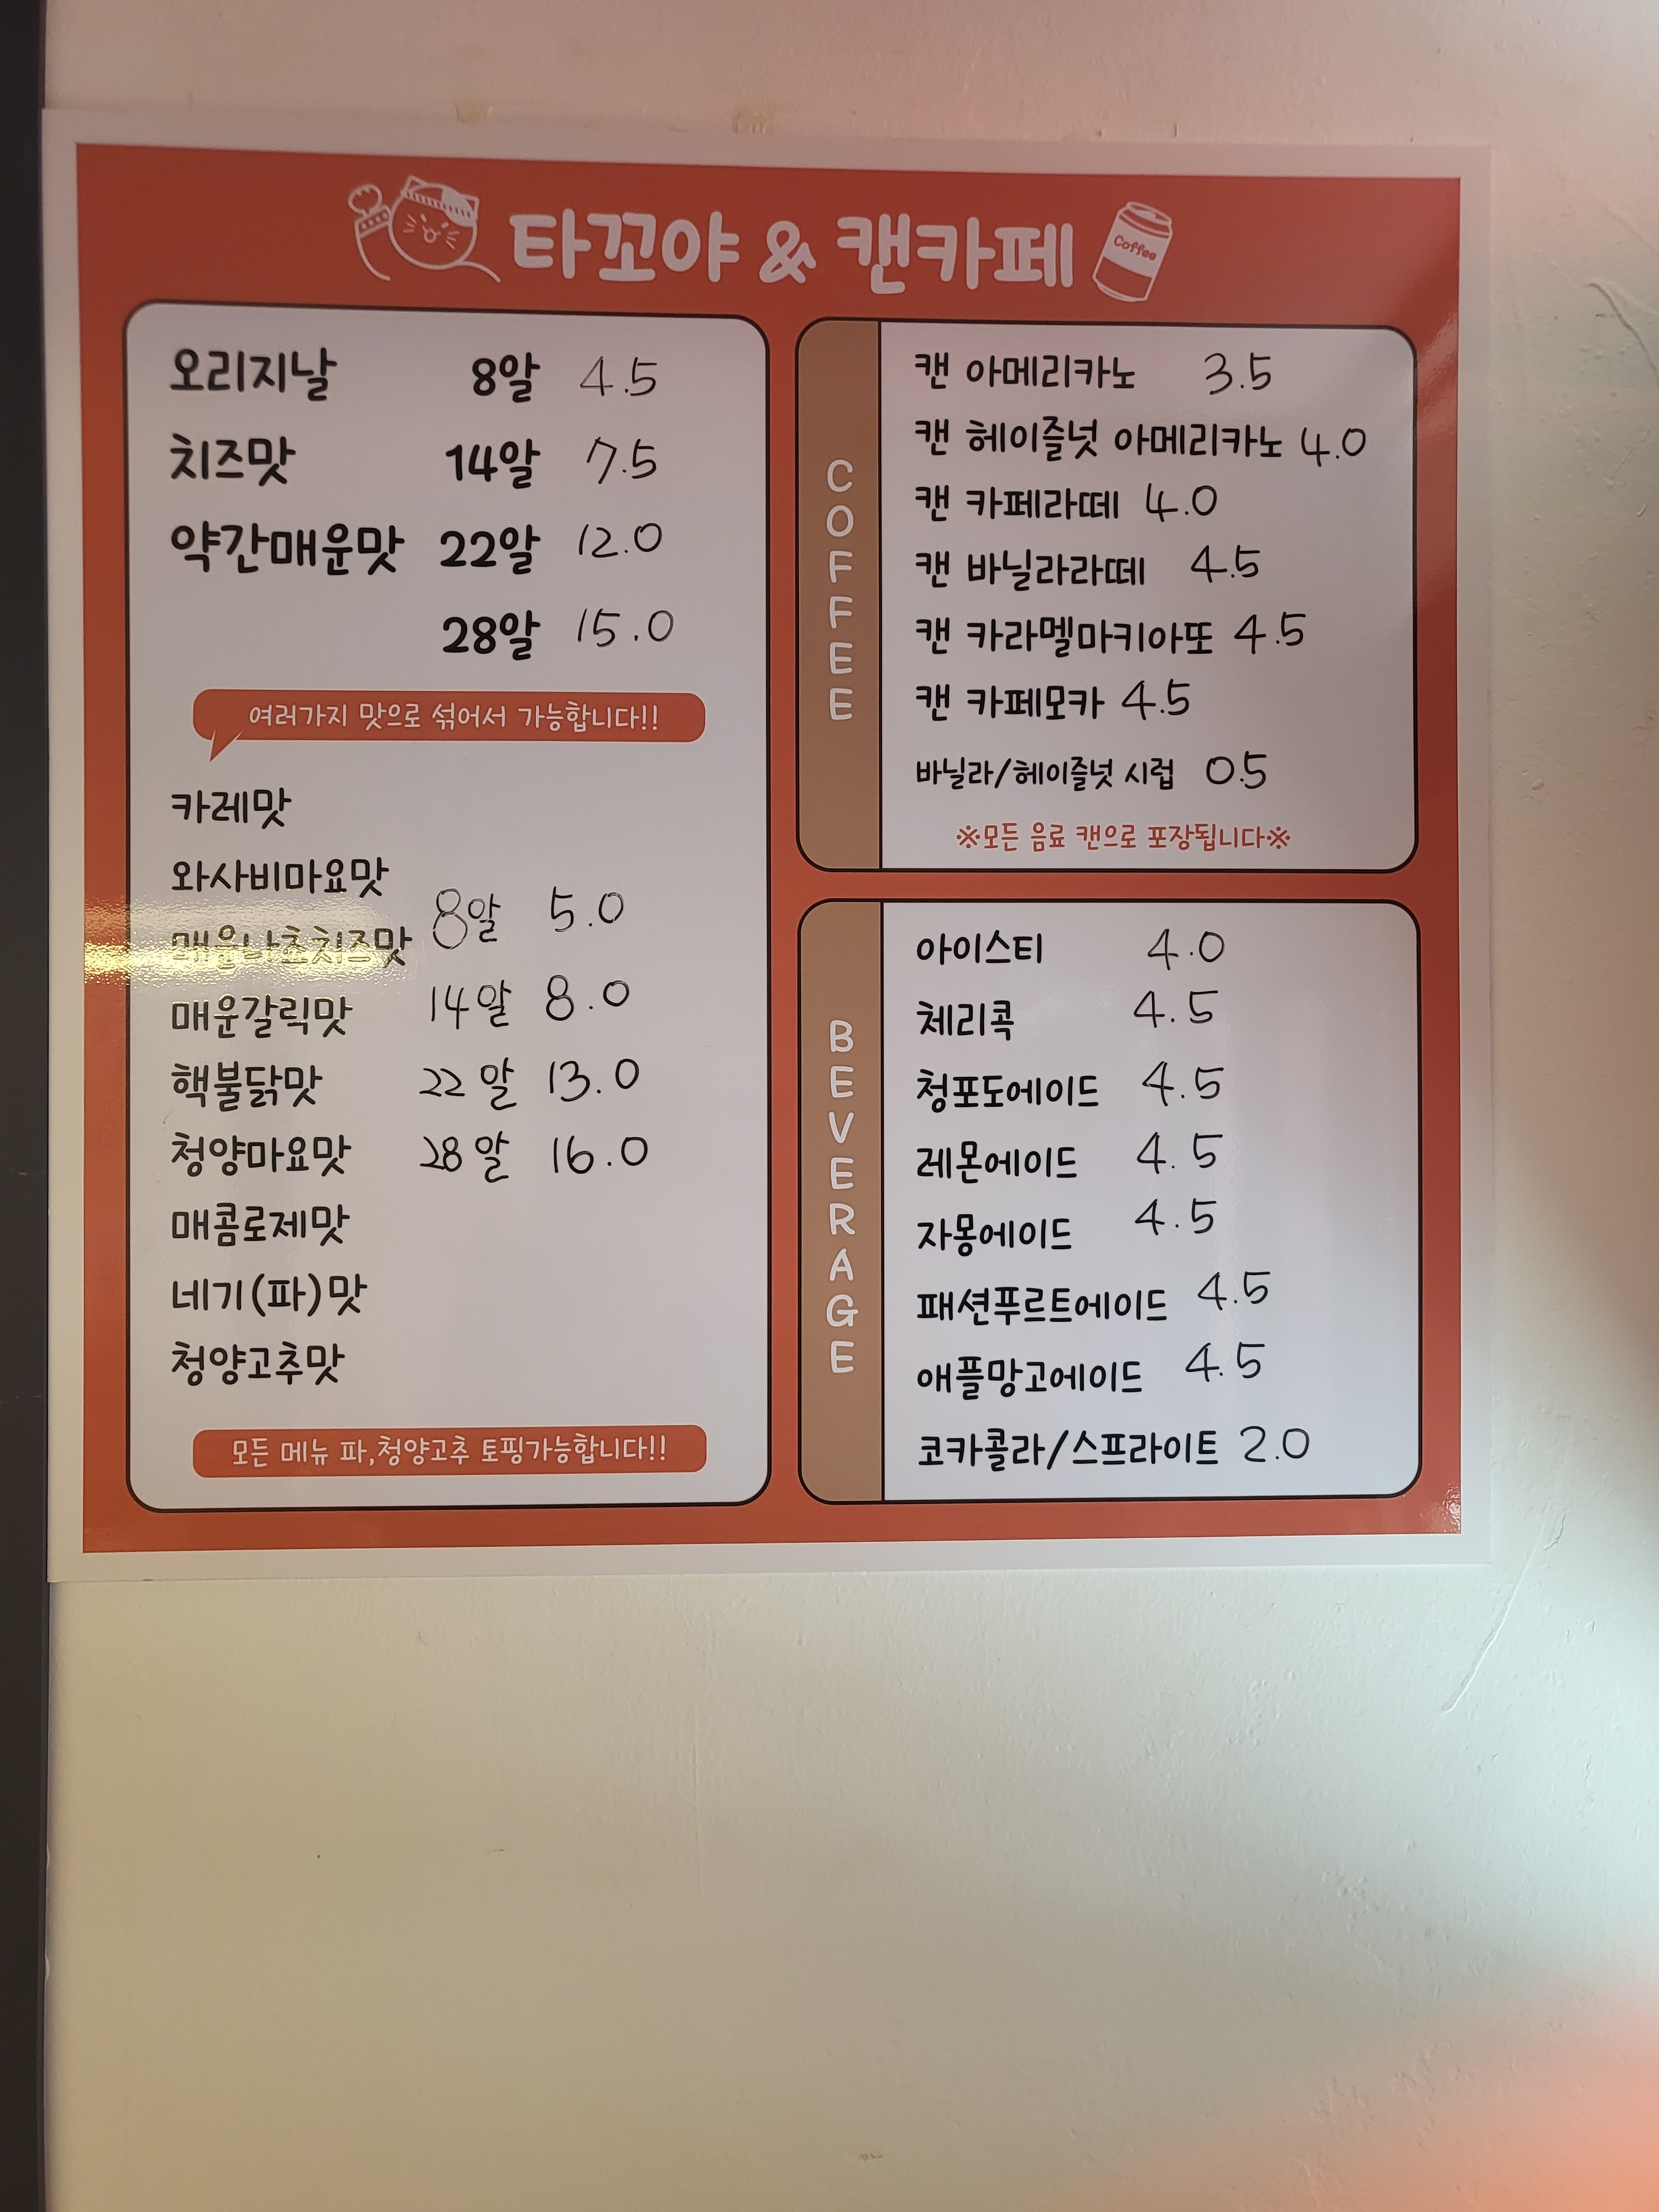 타꼬야 & 캔카페
Coffee
오리지날 8알 4.5
치즈맛 14알 7.5
약간매운맛 22알 12.0
28알 15.0
여러가지 맛으로 섞어서 가능합니다!!
카레맛
와사비마요맛
8알 5.0
매운나쵸치즈맛
매운갈릭맛 14알 8.0
핵불닭맛 22알 13.0
청양마요맛 28알 16.0
매콤로제맛
네기(파)맛
청양고추맛
모든 메뉴 파,청양고추 토핑가능합니다!!
COFFEE
캔 아메리카노 3.5
캔 헤이즐넛 아메리카노 4.0
캔 카페라떼 4.0
캔 바닐라라떼 4.5
캔 카라멜마키아또 4.5
캔 카페모카 4.5
바닐라/헤이즐넛 시럽 0.5
※모든 음료 캔으로 포장됩니다※
BEVERAGE
아이스티 4.0
체리콕 4.5
청포도에이드 4.5
레몬에이드 4.5
자몽에이드 4.5
패션푸르트에이드 4.5
애플망고에이드 4.5
코카콜라/스프라이트 2.0